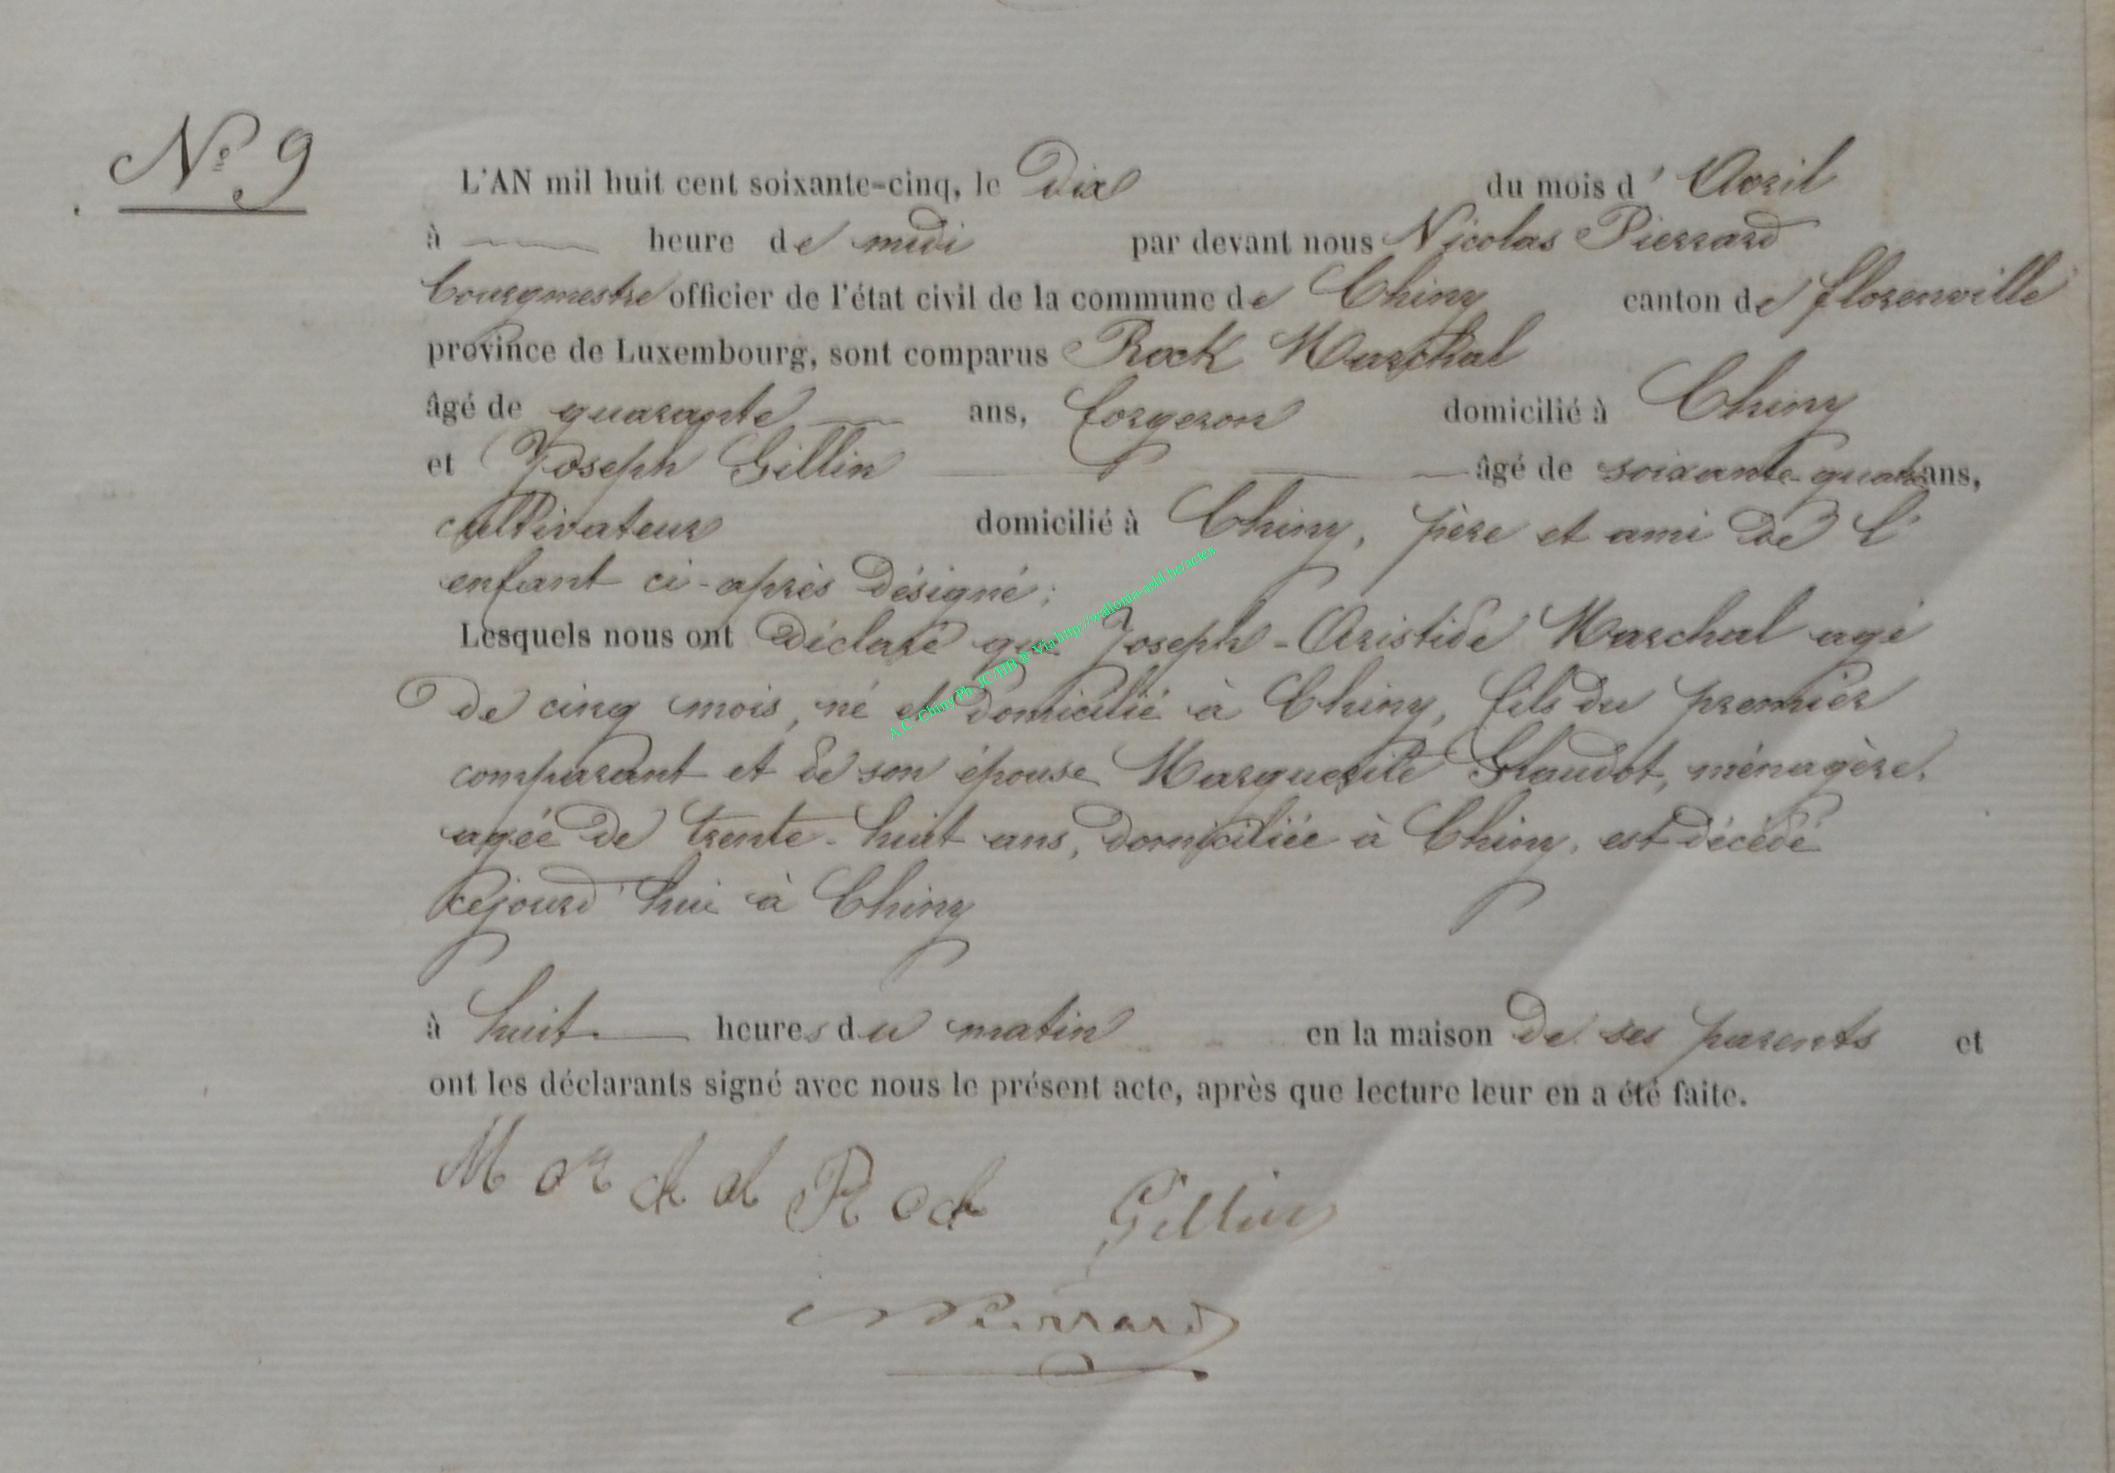 N° 9
L'AN mil huit cent soixante-cinq, le Dix du mois d' Avril
à heure de midi par devant nous Nicolas Pierrard
bourgmestre officier de l'état civil de la commune de Chiny canton de florenville
province de Luxembourg, sont comparus Rock Marchal
âgé de quarante ans, forgeron domicilié à Chiny
et Joseph Gillin âgé de soixante-quatre ans,
cultivateur domicilié à Chiny, père et ami de l'
enfant ci-après désigné;
Lesquels nous ont déclaré que Joseph-Aristide Marchal agé
de cinq mois, né et domicilié à Chiny, fils du premier
comparant et de son épouse Marguerite Glaudot, ménagère,
agée de trente-huit ans, domiciliée à Chiny, est décédé
cejourd'hui à Chiny
à huit heures du matin en la maison de ses parents et
ont les déclarants signé avec nous le présent acte, après que lecture leur en a été faite.
Marchal Roch Gillin
NPierrard
A.C. Chiny Ph. JC/HH @ Via http://wallonia-asbl.be/actes